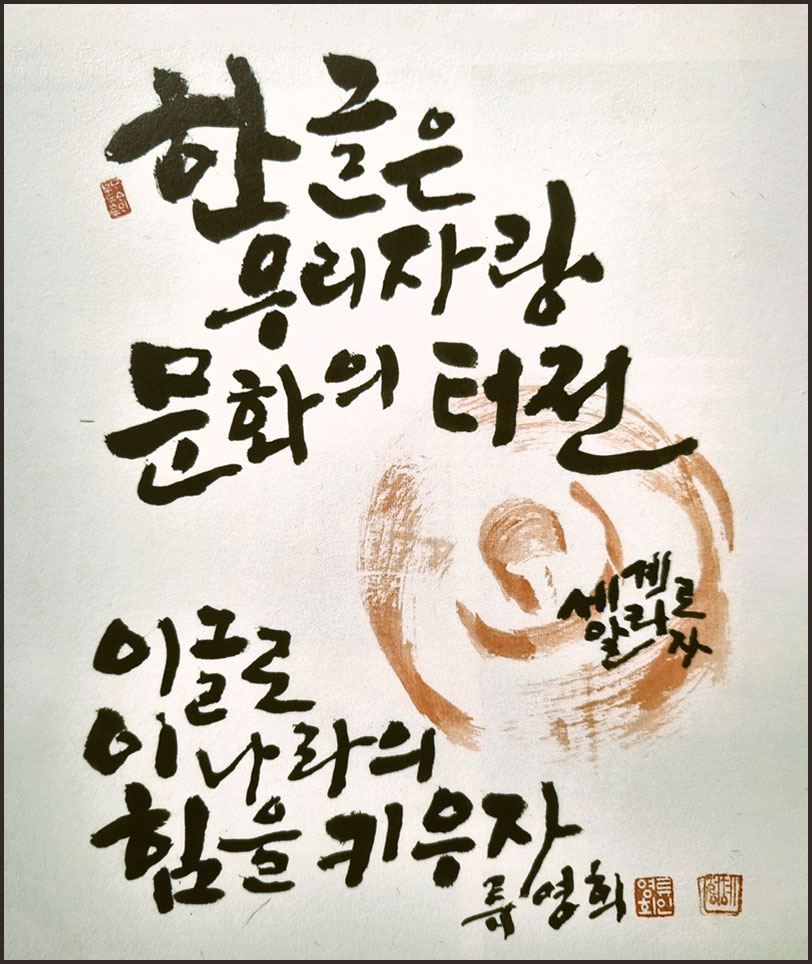 한글은
우리자랑
문화의 터전
세계로
알리자
이글로
이나라의
힘을 키우자
류영희